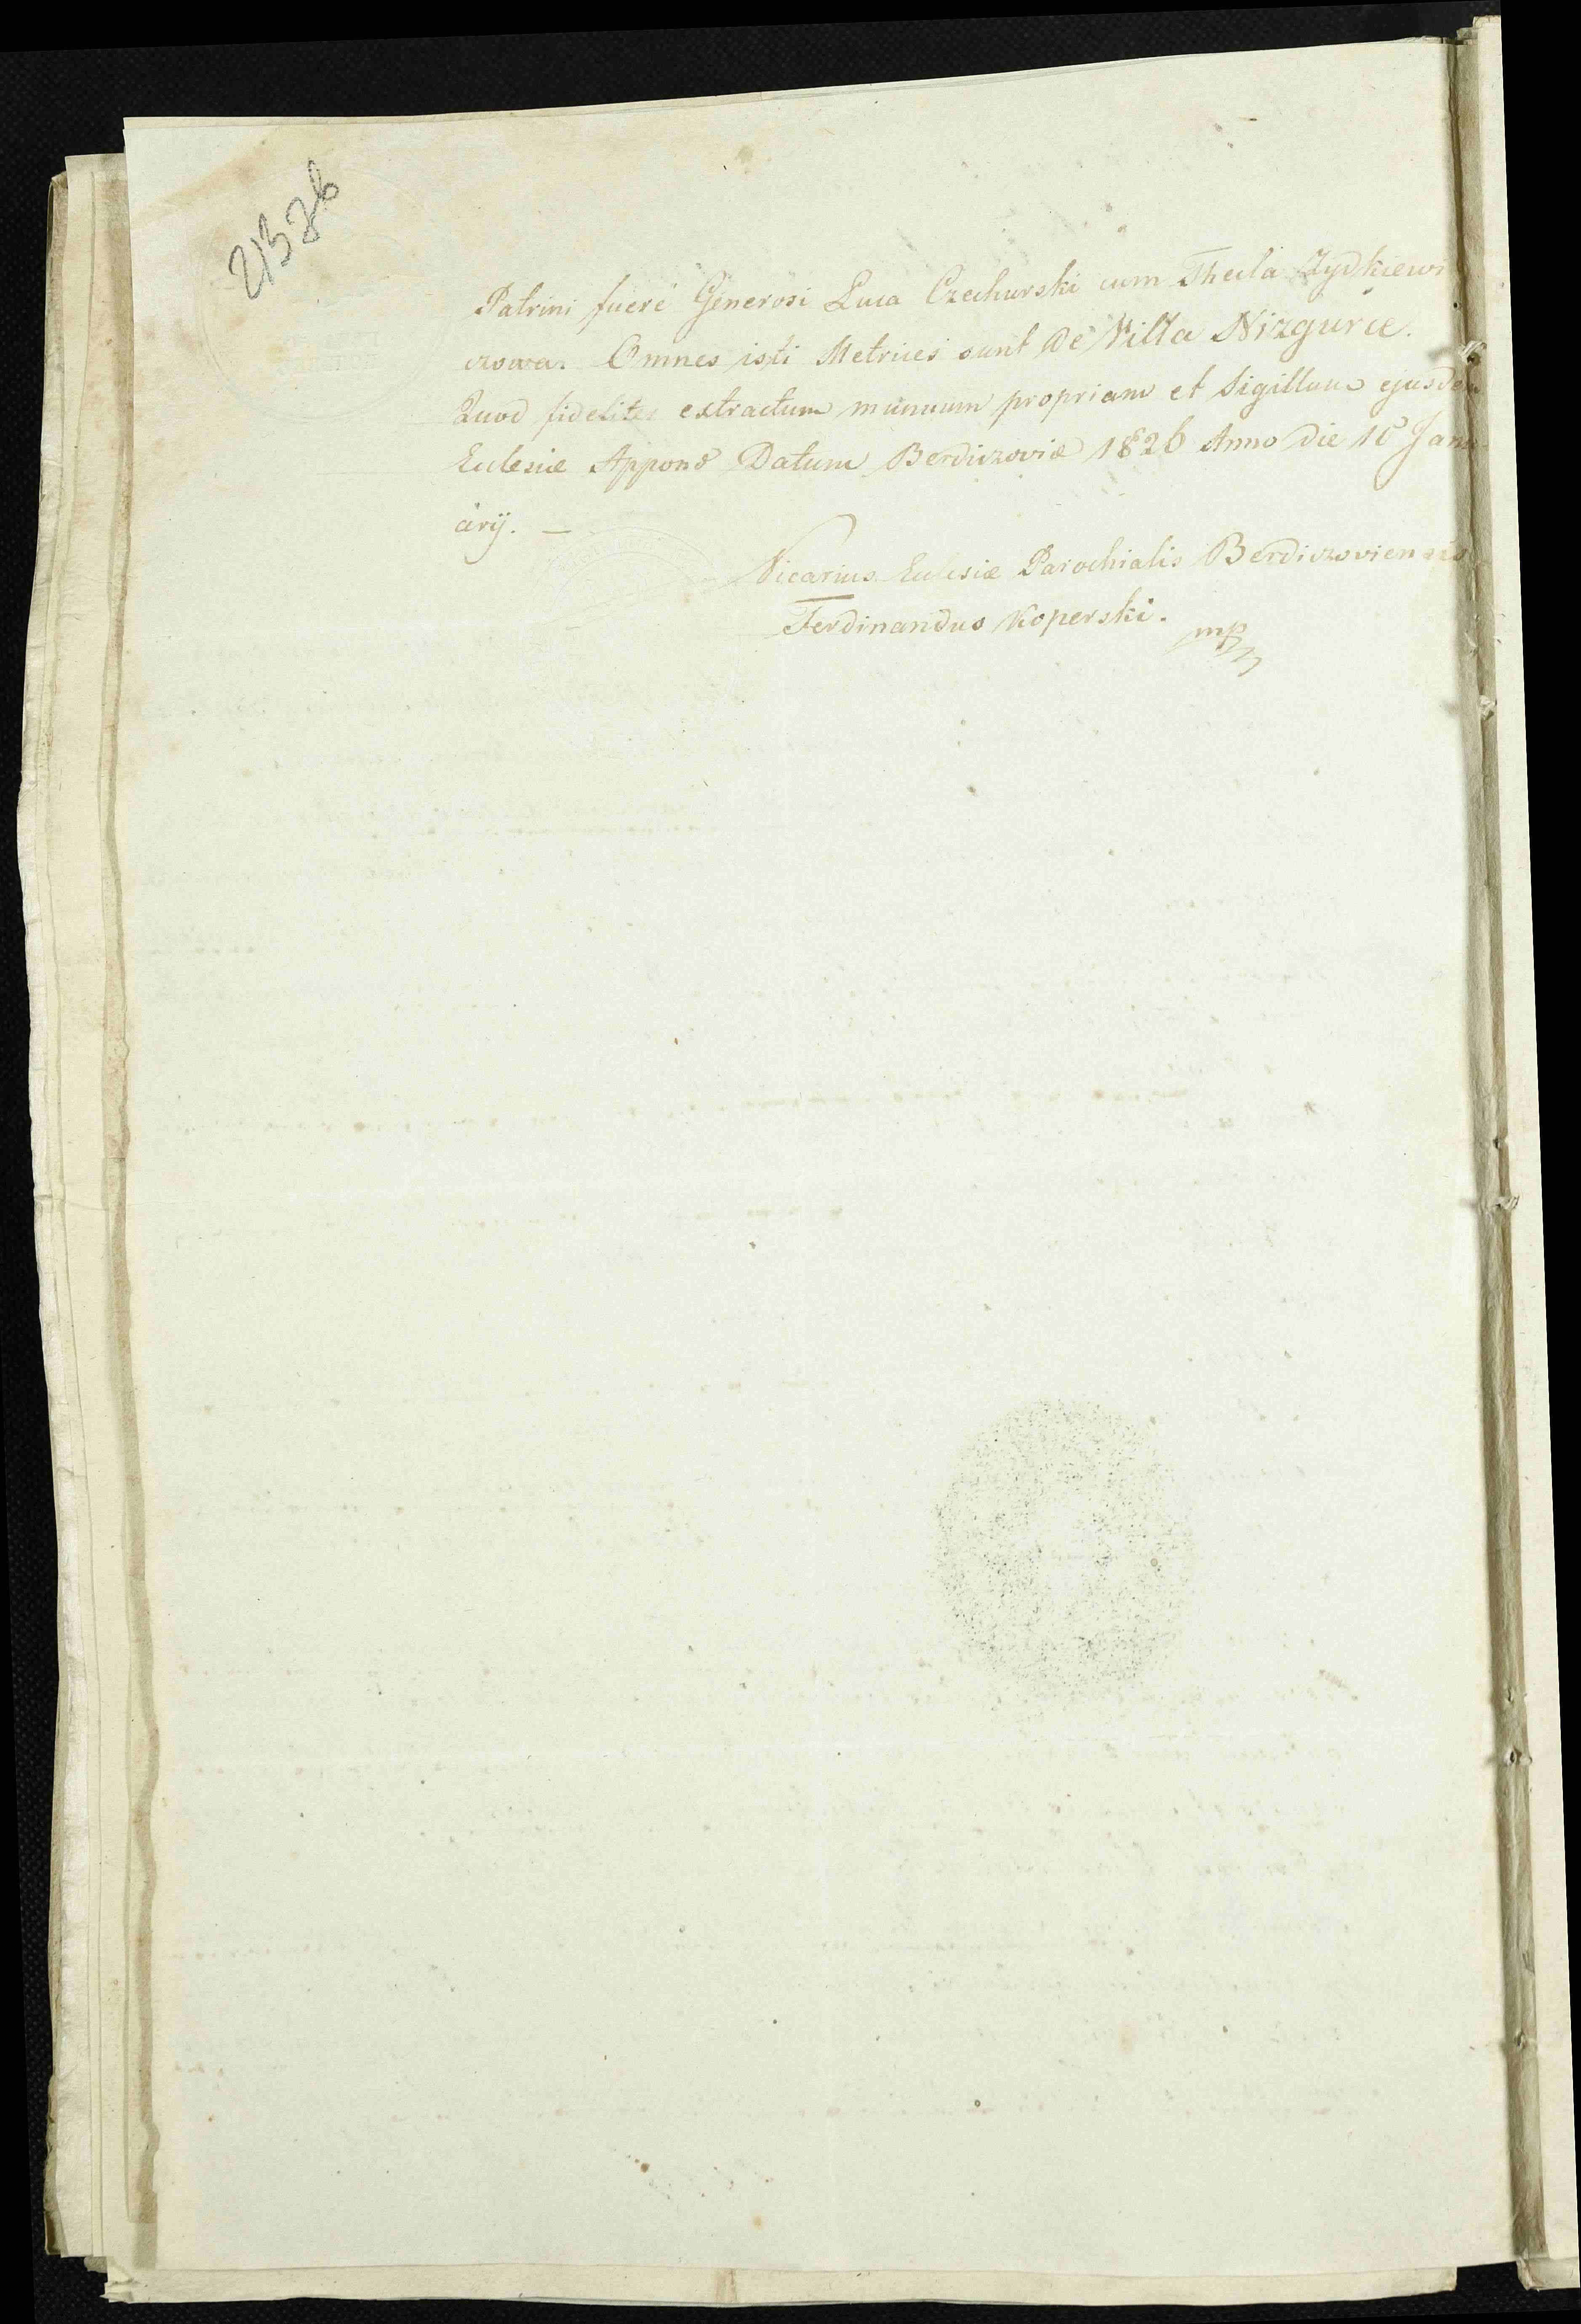 2132b
Patrini fuere Generosi Luca Czechurski cum Thecla Zydkiewi
czowa. Omnes isti Metrices sunt de Villa Nizgurce.
Quod fideliter extractum munuum propriam et Sigillum ejusdem
Eclesiæ Appono Datum Berdiczoviæ 1826 Anno die 10 Janu
arij. —
Vicarius Eclesiæ Parochialis Berdiczoviensis
Ferdinandus Koperski. mp